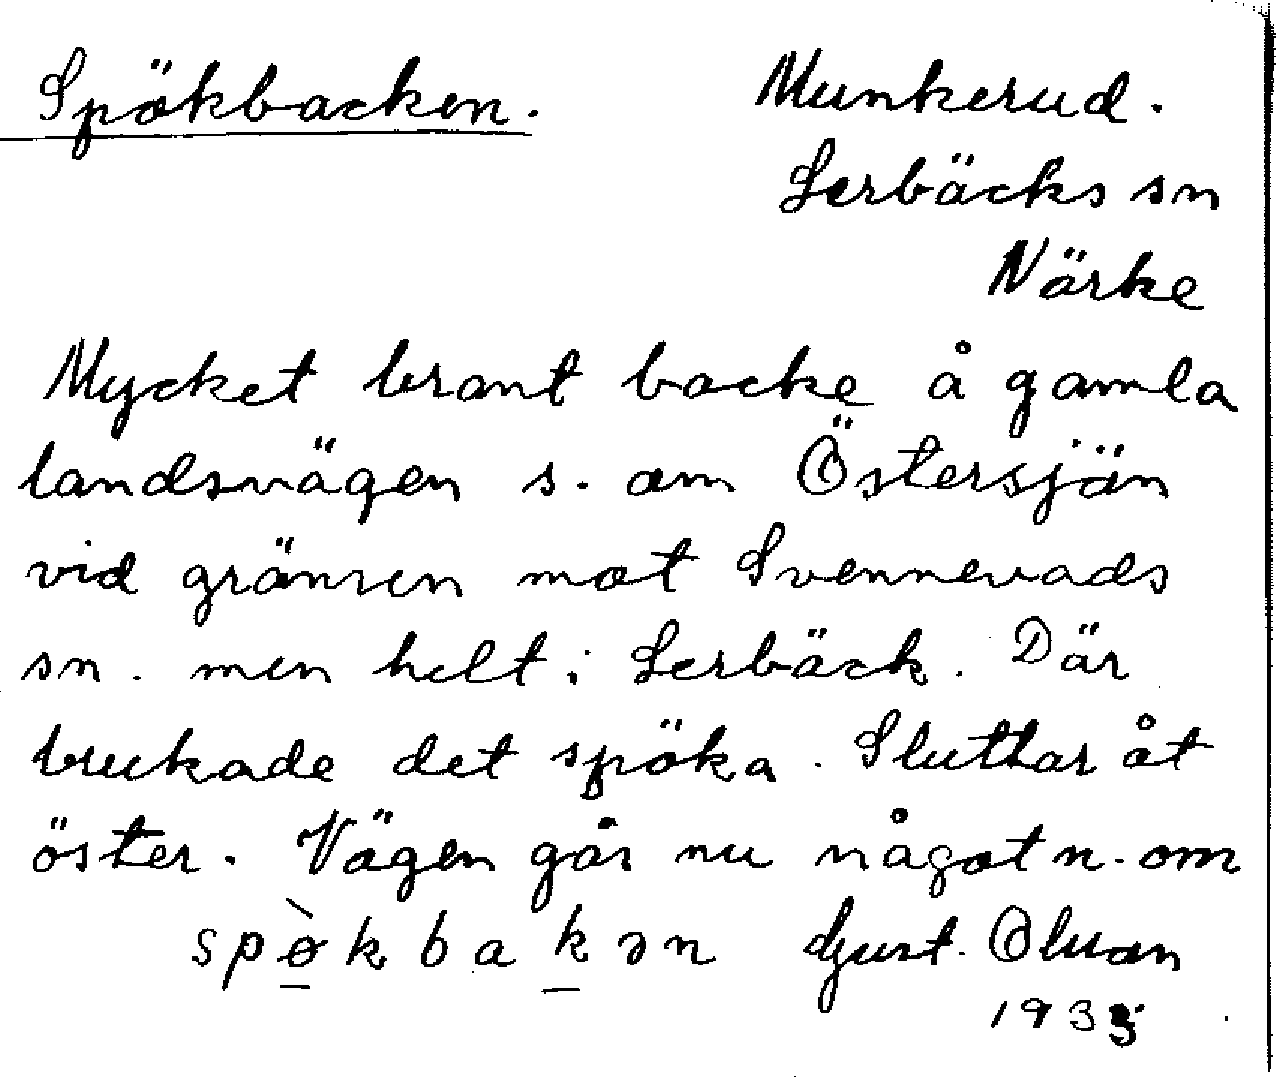 Spökbacken.
Munkerud.
Lerbäcks sn
Närke
Mycket brant backe å gamla
landsvägen s. om Östersjön
vid gränsen mot Svennevads
sn. men helt i Lerbäck. Där
brukade det spöka. Sluttar åt
öster. Vägen går nu något n. om
spø̀kbakən Gust. Olsson